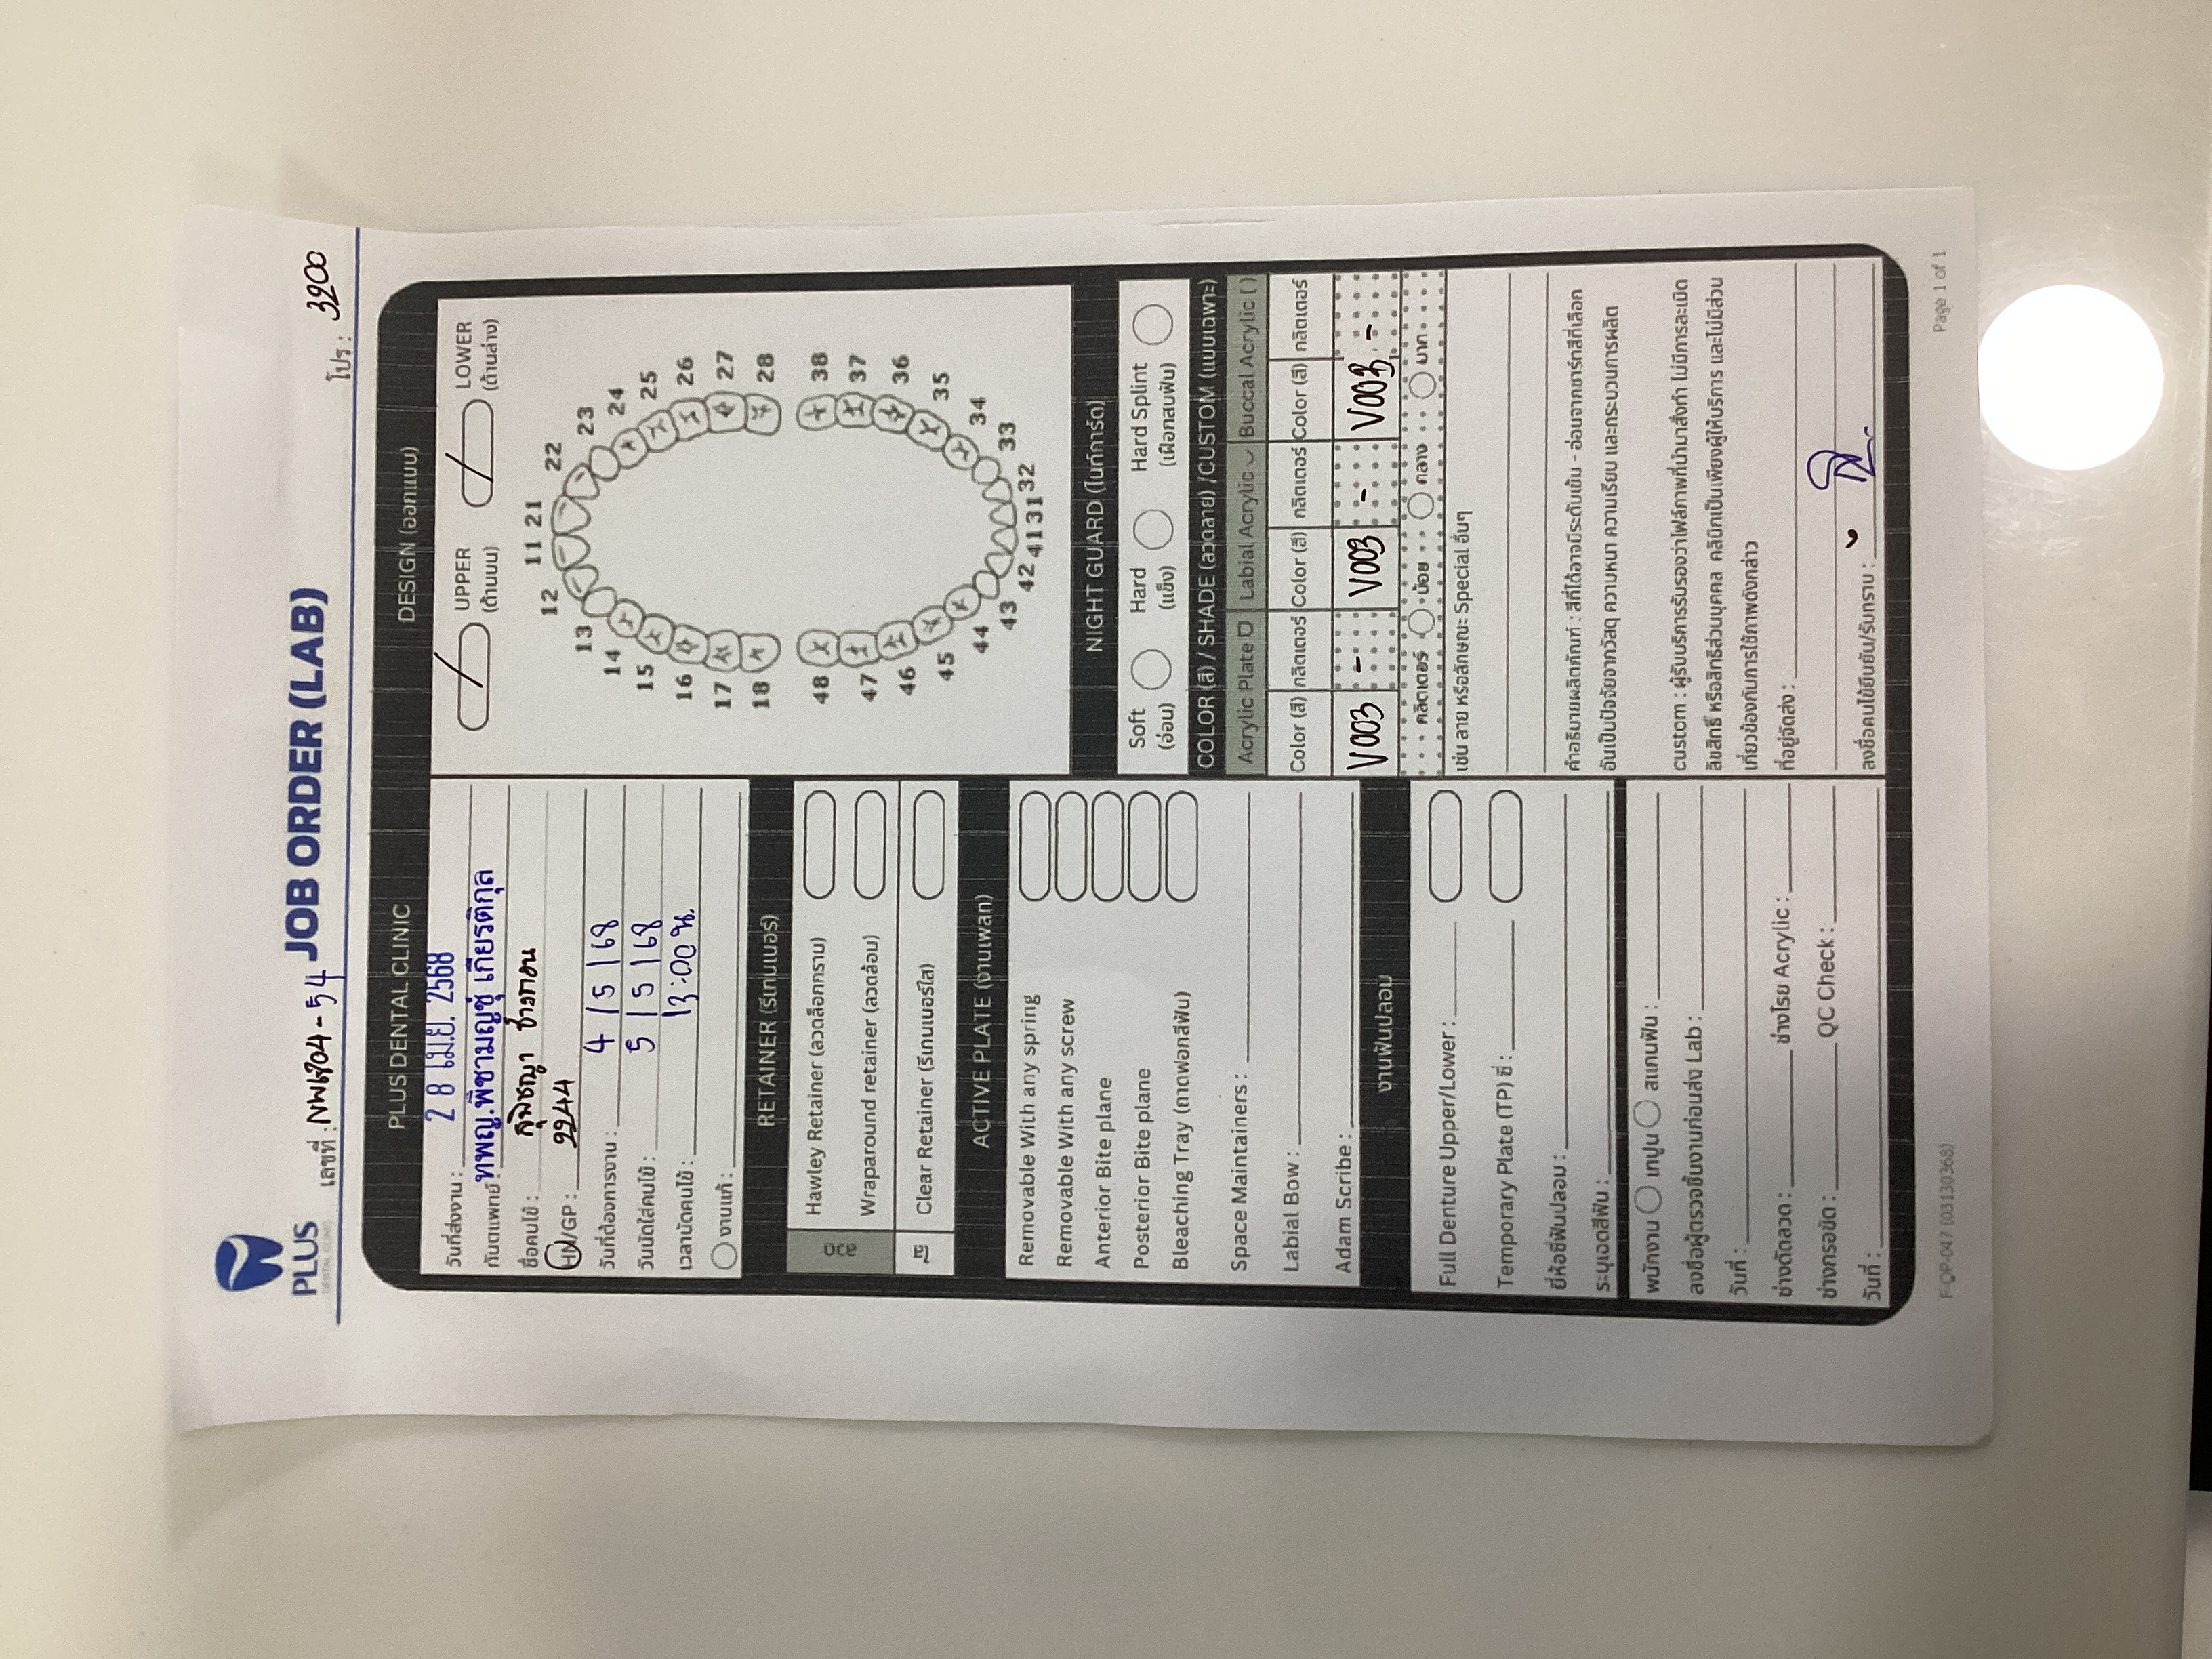 PLUS
DENTAL CLINIC
เลขที่ : NW6804-54
JOB ORDER (LAB)
โปร : 3200
PLUS DENTAL CLINIC
วันที่ส่งงาน : 28 เม.ย. 2568
ทันตแพทย์ : ทพญ.พิชามญชุ์ เกียรติกุล
ชื่อคนไข้ : สุพิชญา
HN/GP : 2244
วันที่ต้องการงาน : 4 / 5 / 68
วันนัดใส่คนไข้ : 5 / 5 / 68
เวลานัดคนไข้ : 13:00 น.
งานแก้ :
RETAINER (รีเทนเนอร์)
ลวด
Hawley Retainer (ลวดล็อกกราม)
Wraparound retainer (ลวดล้อม)
ใส
Clear Retainer (รีเทนเนอร์ใส)
ACTIVE PLATE (งานเพลท)
Removable With any spring
Removable With any screw
Anterior Bite plane
Posterior Bite plane
Bleaching Tray (ถาดฟอกสีฟัน)
Space Maintainers :
Labial Bow :
Adam Scribe :
งานฟันปลอม
Full Denture Upper/Lower :
Temporary Plate (TP) ซี่ :
ยี่ห้อซี่ฟันปลอม :
ระบุเฉดสีฟัน :
พนักงาน เทปูน สแกนฟัน :
ลงชื่อผู้ตรวจชิ้นงานก่อนส่ง Lab :
วันที่ :
ช่างดัดลวด : ช่างโรย Acrylic :
ช่างกรอขัด : QC Check :
วันที่ :
DESIGN (ออกแบบ)
UPPER
(ด้านบน)
LOWER
(ด้านล่าง)
11 21
12 22
13 23
14 24
15 25
16 26
17 27
18 28
48 38
47 37
46 36
45 35
44 34
43 33
42 41 31 32
NIGHT GUARD (ไนท์การ์ด)
Soft
(อ่อน)
Hard
(แข็ง)
Hard Splint
(เฝือกสบฟัน)
COLOR (สี) / SHADE (ลวดลาย) /CUSTOM (แบบเฉพาะ)
Acrylic Plate Labial Acrylic Buccal Acrylic ( )
Color (สี) กลิตเตอร์ Color (สี) กลิตเตอร์ Color (สี) กลิตเตอร์
V003 - V003 - V003 -
กลิตเตอร์ น้อย กลาง มาก
เช่น ลาย หรือลักษณะ Special อื่นๆ
คำอธิบายผลิตภัณฑ์ : สีที่ได้อาจมีระดับเข้ม - อ่อนจากชาร์ทสีที่เลือก
อันเป็นปัจจัยจากวัสดุ ความหนา ความเรียบ และกระบวนการผลิต
custom : ผู้รับบริการรับรองว่าไฟล์ภาพที่นำมาสั่งทำ ไม่มีการละเมิด
ลิขสิทธิ์ หรือสิทธิส่วนบุคคล คลินิกเป็นเพียงผู้ให้บริการ และไม่มีส่วน
เกี่ยวข้องกับการใช้ภาพดังกล่าว
ที่อยู่จัดส่ง :
ลงชื่อคนไข้ยืนยัน/รับทราบ :
F-OP-047 (03130368)
Page 1 of 1